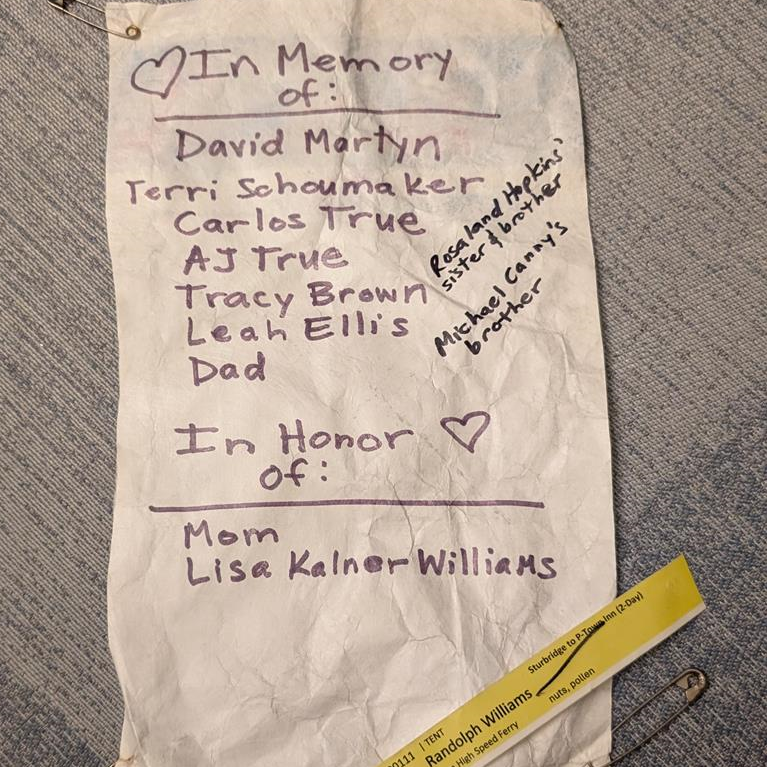 In Memory
of:
David Martyn
Terri Schoumaker
Carlos True
AJ True
Tracy Brown
Leah Ellis
Dad
Rosaland Hopkins'
sister & brother
Michael Canny's
brother
In Honor
of:
Mom
Lisa Kalner Williams
Sturbridge to P-Town Inn (2-Day)
0111 | TENT
Randolph Williams
nuts, pollen
High Speed Ferry